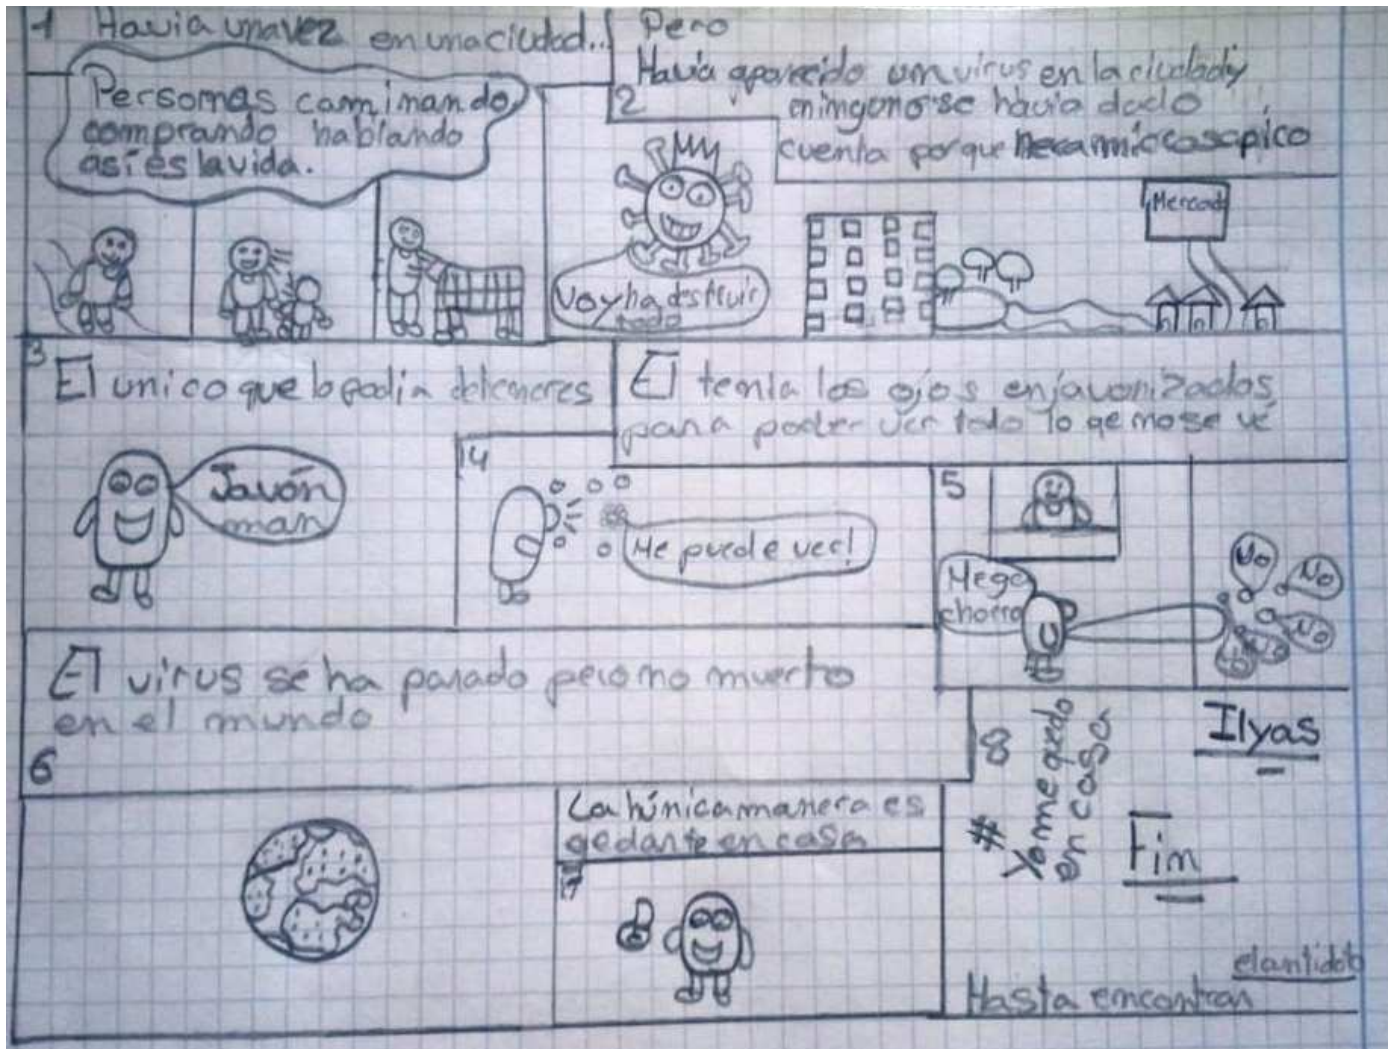 1 Havia una vez en una ciudad...
Personas caminando,
comprando hablando
así es la vida.
Pero
Havia aparecido un virus en la ciudad y
2 ningono se havia dado
cuenta porque era miccosopico
Voy ha destruir
todo
Mercado
3
El unico que lo podia detener es
Javón
man
El tenia los ojos enjavonizados
para poder ver todo lo qe no se ve
4
Me puede ver!
5
Mega
chorro
No
No
No
El virus se ha parado pero no muerto
en el mundo
6
La húnica manera es
qedarte en casa
7
8
# Yo me quedo
en casa
Ilyas
Fin
Hasta encontrar
el antidoto